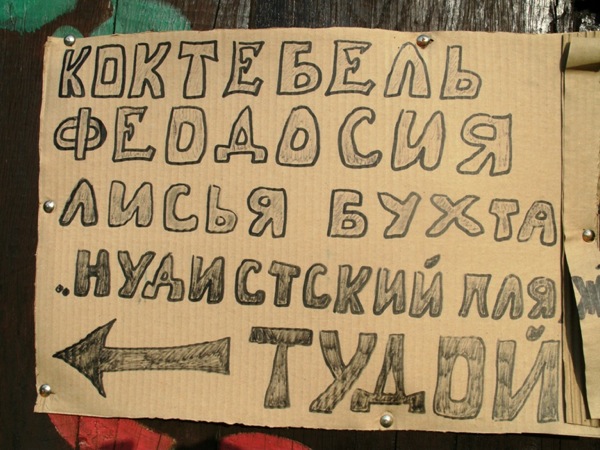 КОКТЕБЕЛЬ
ФЕОДОСИЯ
ЛИСЬЯ БУХТА
„НУДИСТСКИЙ ПЛЯЖ
ТУДОЙ